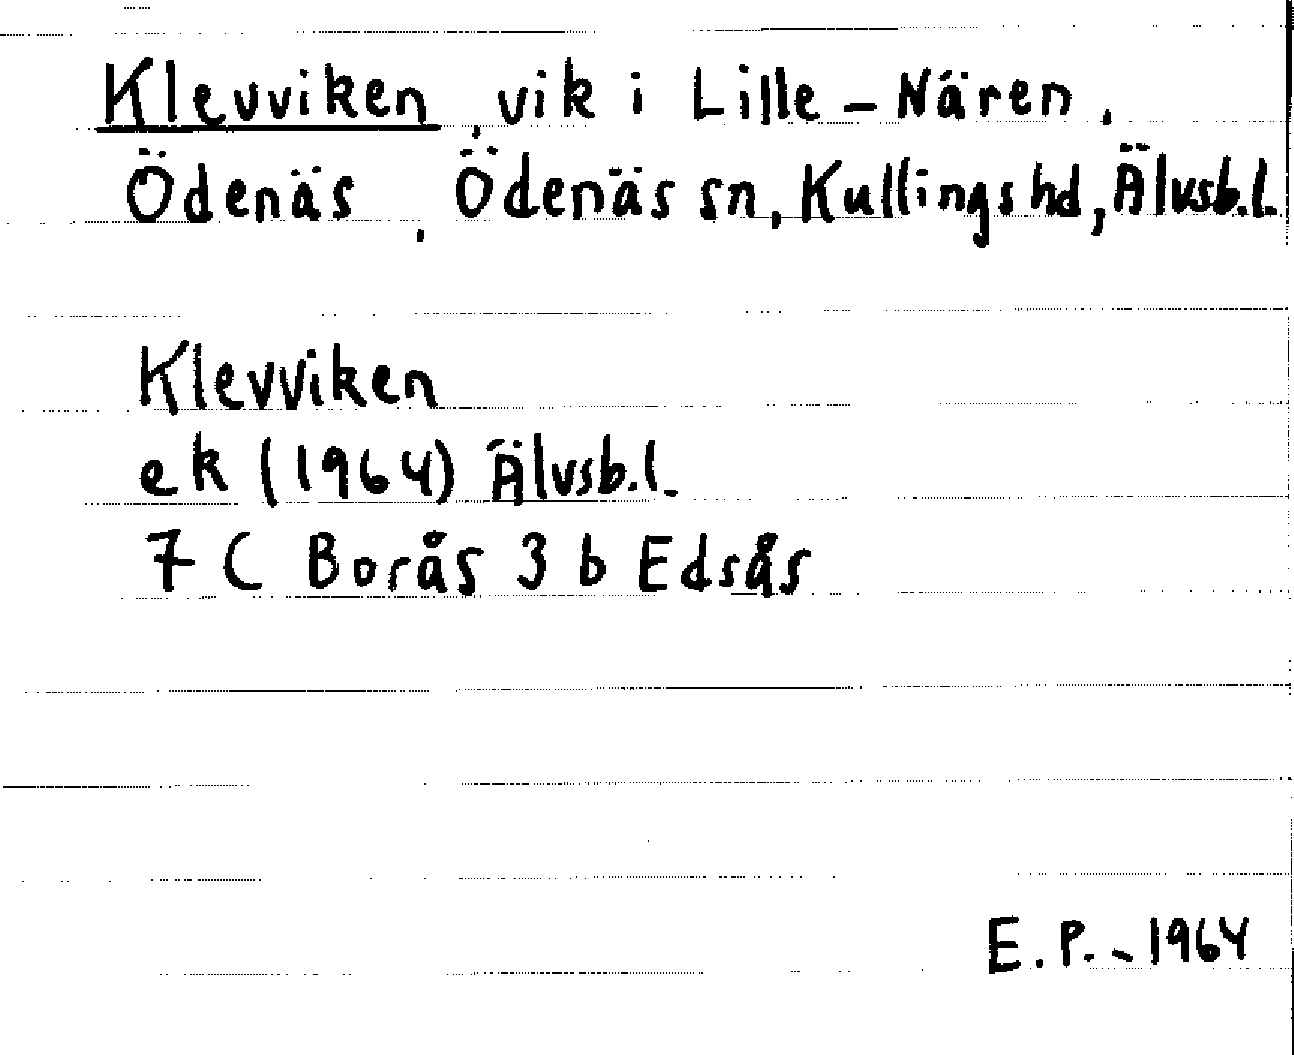 Klevviken, vik i Lille-Nären,
Ödenäs, Ödenäs sn, Kullings hd, Älvsb.l.
Klevviken
ek (1964) Älvsb.l.
7 C Borås 3 b Edsås
E.P. - 1964